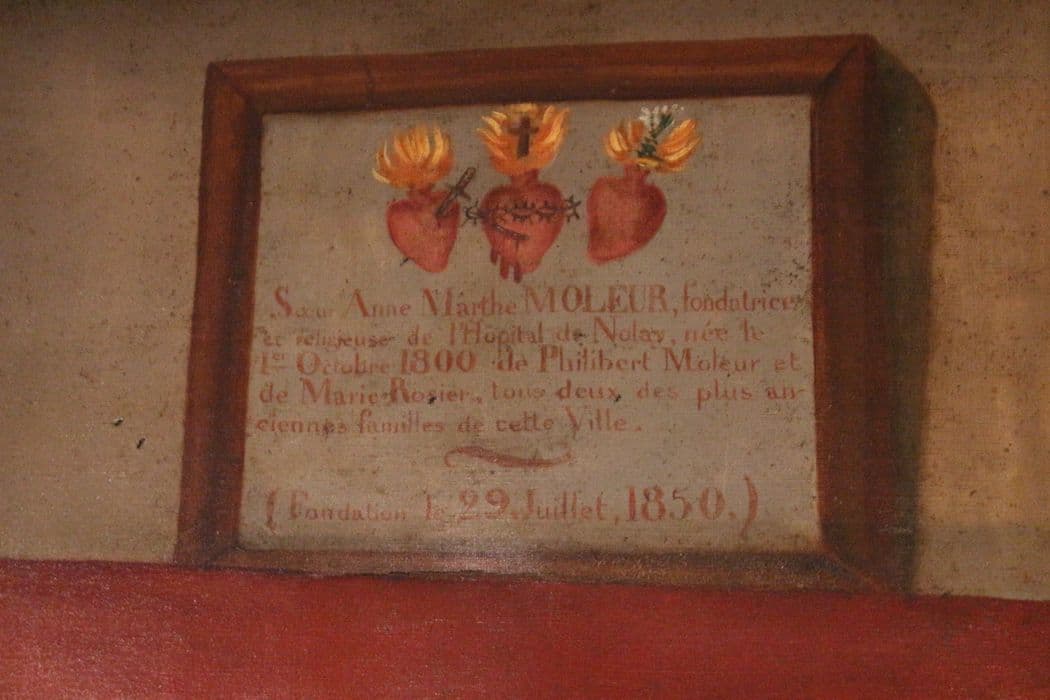 Sœur Anne Marthe MOLEUR, fondatrice
et religieuse de l'Hôpital de Nolay, née le
1er Octobre 1800 de Philibert Moleur et
de Marie Rosier, tous deux des plus an-
ciennes familles de cette Ville.
(Fondation le 29 Juillet, 1850.)